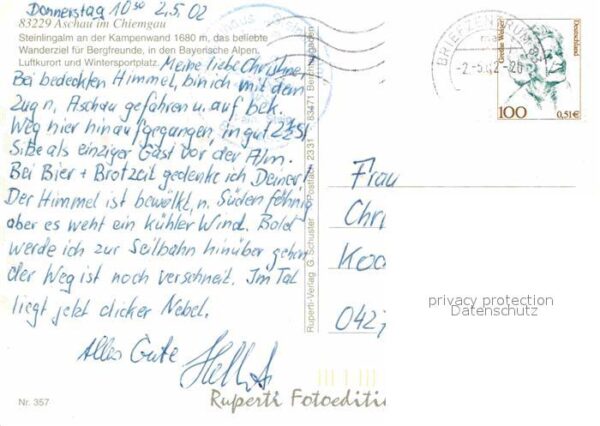 Donnerstag 10³⁰ 2.5.02
83229 Aschau im Chiemgau
Steinlingalm an der Kampenwand 1680 m, das beliebte
Wanderziel für Bergfreunde, in den Bayerische Alpen.
Luftkurort und Wintersportplatz.
Meine liebe Christine!
Bei bedeckten Himmel, bin ich mit dem
Zug n. Aschau gefahren u. auf bek.
Weg hier hinaufgegangen, in gut 2½ St.
Sitze als einziger Gast vor der Alm.
Bei Bier + Brotzeit gedenke ich Deiner!
Der Himmel ist bewölkt, n. Süden föhnig
aber es weht ein kühler Wind. Bald
werde ich zur Seilbahn hinüber gehen
der Weg ist noch verschneit. Im Tal
liegt jetzt dicker Nebel.
Alles Gute
Nr. 357
Ruperti-Verlag G. Schuster Postfach 2331 · 83471 Berchtesgaden
Ruperti Fotoeditio
BRIEFZENTRUM 83
-2.-5.02-20
Grethe Weiser
Deutschland
100
0,51€
Frau
Chri
Koo
042
privacy protection
Datenschutz